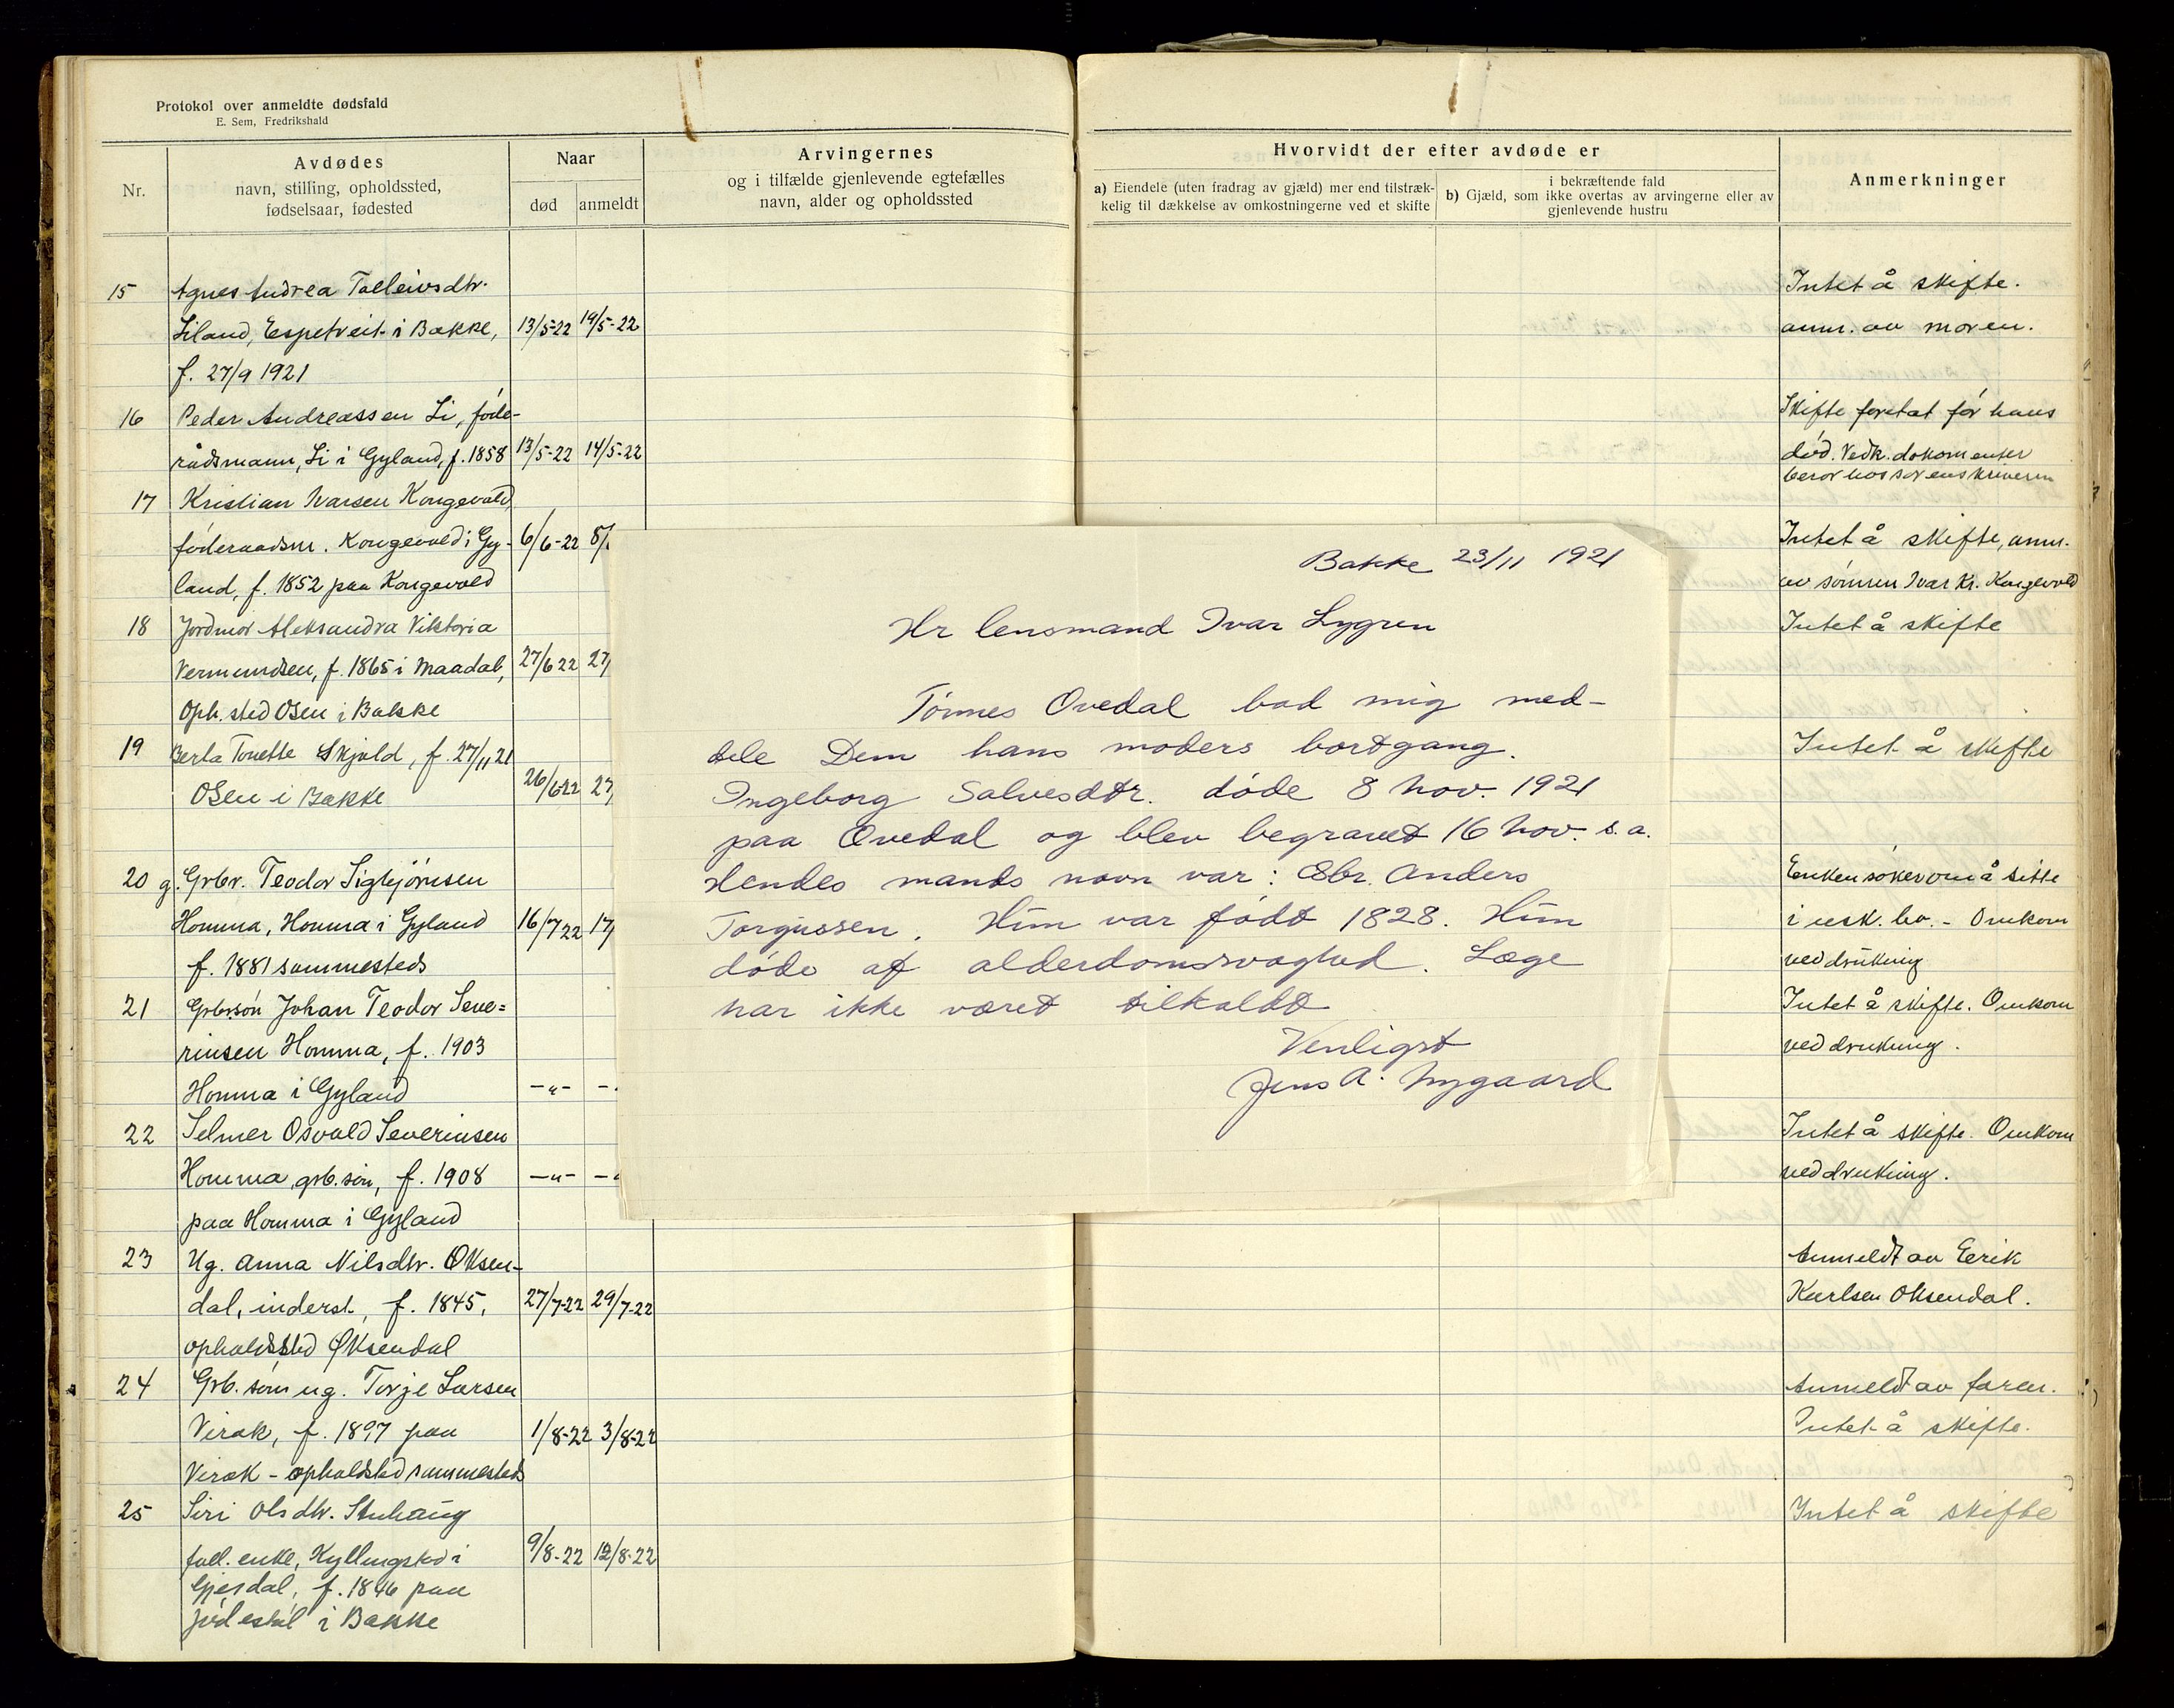 Protokol over anmeldte dødsfald
E. Sem, Fredrikshald
Nr.
Avdødes
navn, stilling, opholdssted,
fødselsaar, fødested
Naar
død
anmeldt
Arvingernes
og i tilfælde gjenlevende egtefælles
navn, alder og opholdssted
Hvorvidt der efter avdøde er
a) Eiendele (uten fradrag av gjæld) mer end tilstræk-
kelig til dækkelse av omkostningerne ved et skifte
i bekræftende fald
b) Gjæld, som ikke overtas av arvingerne eller av
gjenlevende hustru
Anmerkninger
15 Agnes Andrea Tolleivsdtr. Intet å skifte.
Liland, Espetveit i Bakke, 13/5-22 19/5-22 anm. av moren.
f. 27/9 1921
16 Peder Andreassen Li, føde- Skifte foretat før hans
rådsmann, Li i Gyland, f. 1858 13/5-22 14/5-22 død. Vedk. dokomenter
beror hos sorenskriveren
17 Kristian Ivarsen Kongevold,
føderaadsm. Kongevold i Gy- 6/6-22 8/ Intet å skifte, anm.
land, f. 1852 paa Kongevold av sønnen Ivar Kr. Kongevold
18 Jordmor Aleksandra Viktoria Intet å skifte
Vermundsen, f. 1865 i Maadal, 27/6 22 27/
Oph.sted Osen i Bakke
19 Berta Tonette Skjold, f. 27/11 21 Intet å skifte
Osen i Bakke 26/6-22 27/
20 g. Grbr. Teodor Sigbjørnsen Enken søker om å sitte
Homma, Homma i Gyland 16/7 22 17/ i usk. bo. - Omkom
f. 1881 sammesteds ved drukning
21 Grbr.søn Johan Teodor Seve= Intet å skifte. Omkom
rinsen Homma, f. 1903 ved drukning.
Homma i Gyland -"- -
22 Selmer Osvald Severinsen Intet å skifte. Omkom
Homma, grb.søn, f. 1908 -"- - ved drukning.
paa Homma i Gyland
23 Ug. Anna Nilsdtr. Øksen- Anmeldt av Eerik
dal, inderst, f. 1845, 27/7-22 29/7-22 Karlsen Øksendal.
opholdssted Øksendal
24 Grb. søn ug. Torje Larsen Anmeldt av faren.
Virak, f. 1897 paa 1/8-22 3/8-22 Intet å skifte.
Virak - opholdsted sammesteds
25 Siri Olsdtr. Stuhaug Intet å skifte
enke, Kyllingsted i 9/8-22 12/8-22
Gjesdal, f. 1846 paa
i Bakke
Bakke 23/11 1921
Hr lensmand Ivar Lygren
Tønnes Ovedal bad mig med-
dele Dem hans moders bortgang.
Ingeborg Salvesdtr. døde 8 nov. 1921
paa Ovedal og blev begravet 16 nov. s.a.
Hendes mands navn var: Gbr. Anders
Torgussen. Hun var født 1828. Hun
døde af alderdomssvaghed. Læge
har ikke været tilkaldt
Venligst
Jens A. Nygaard